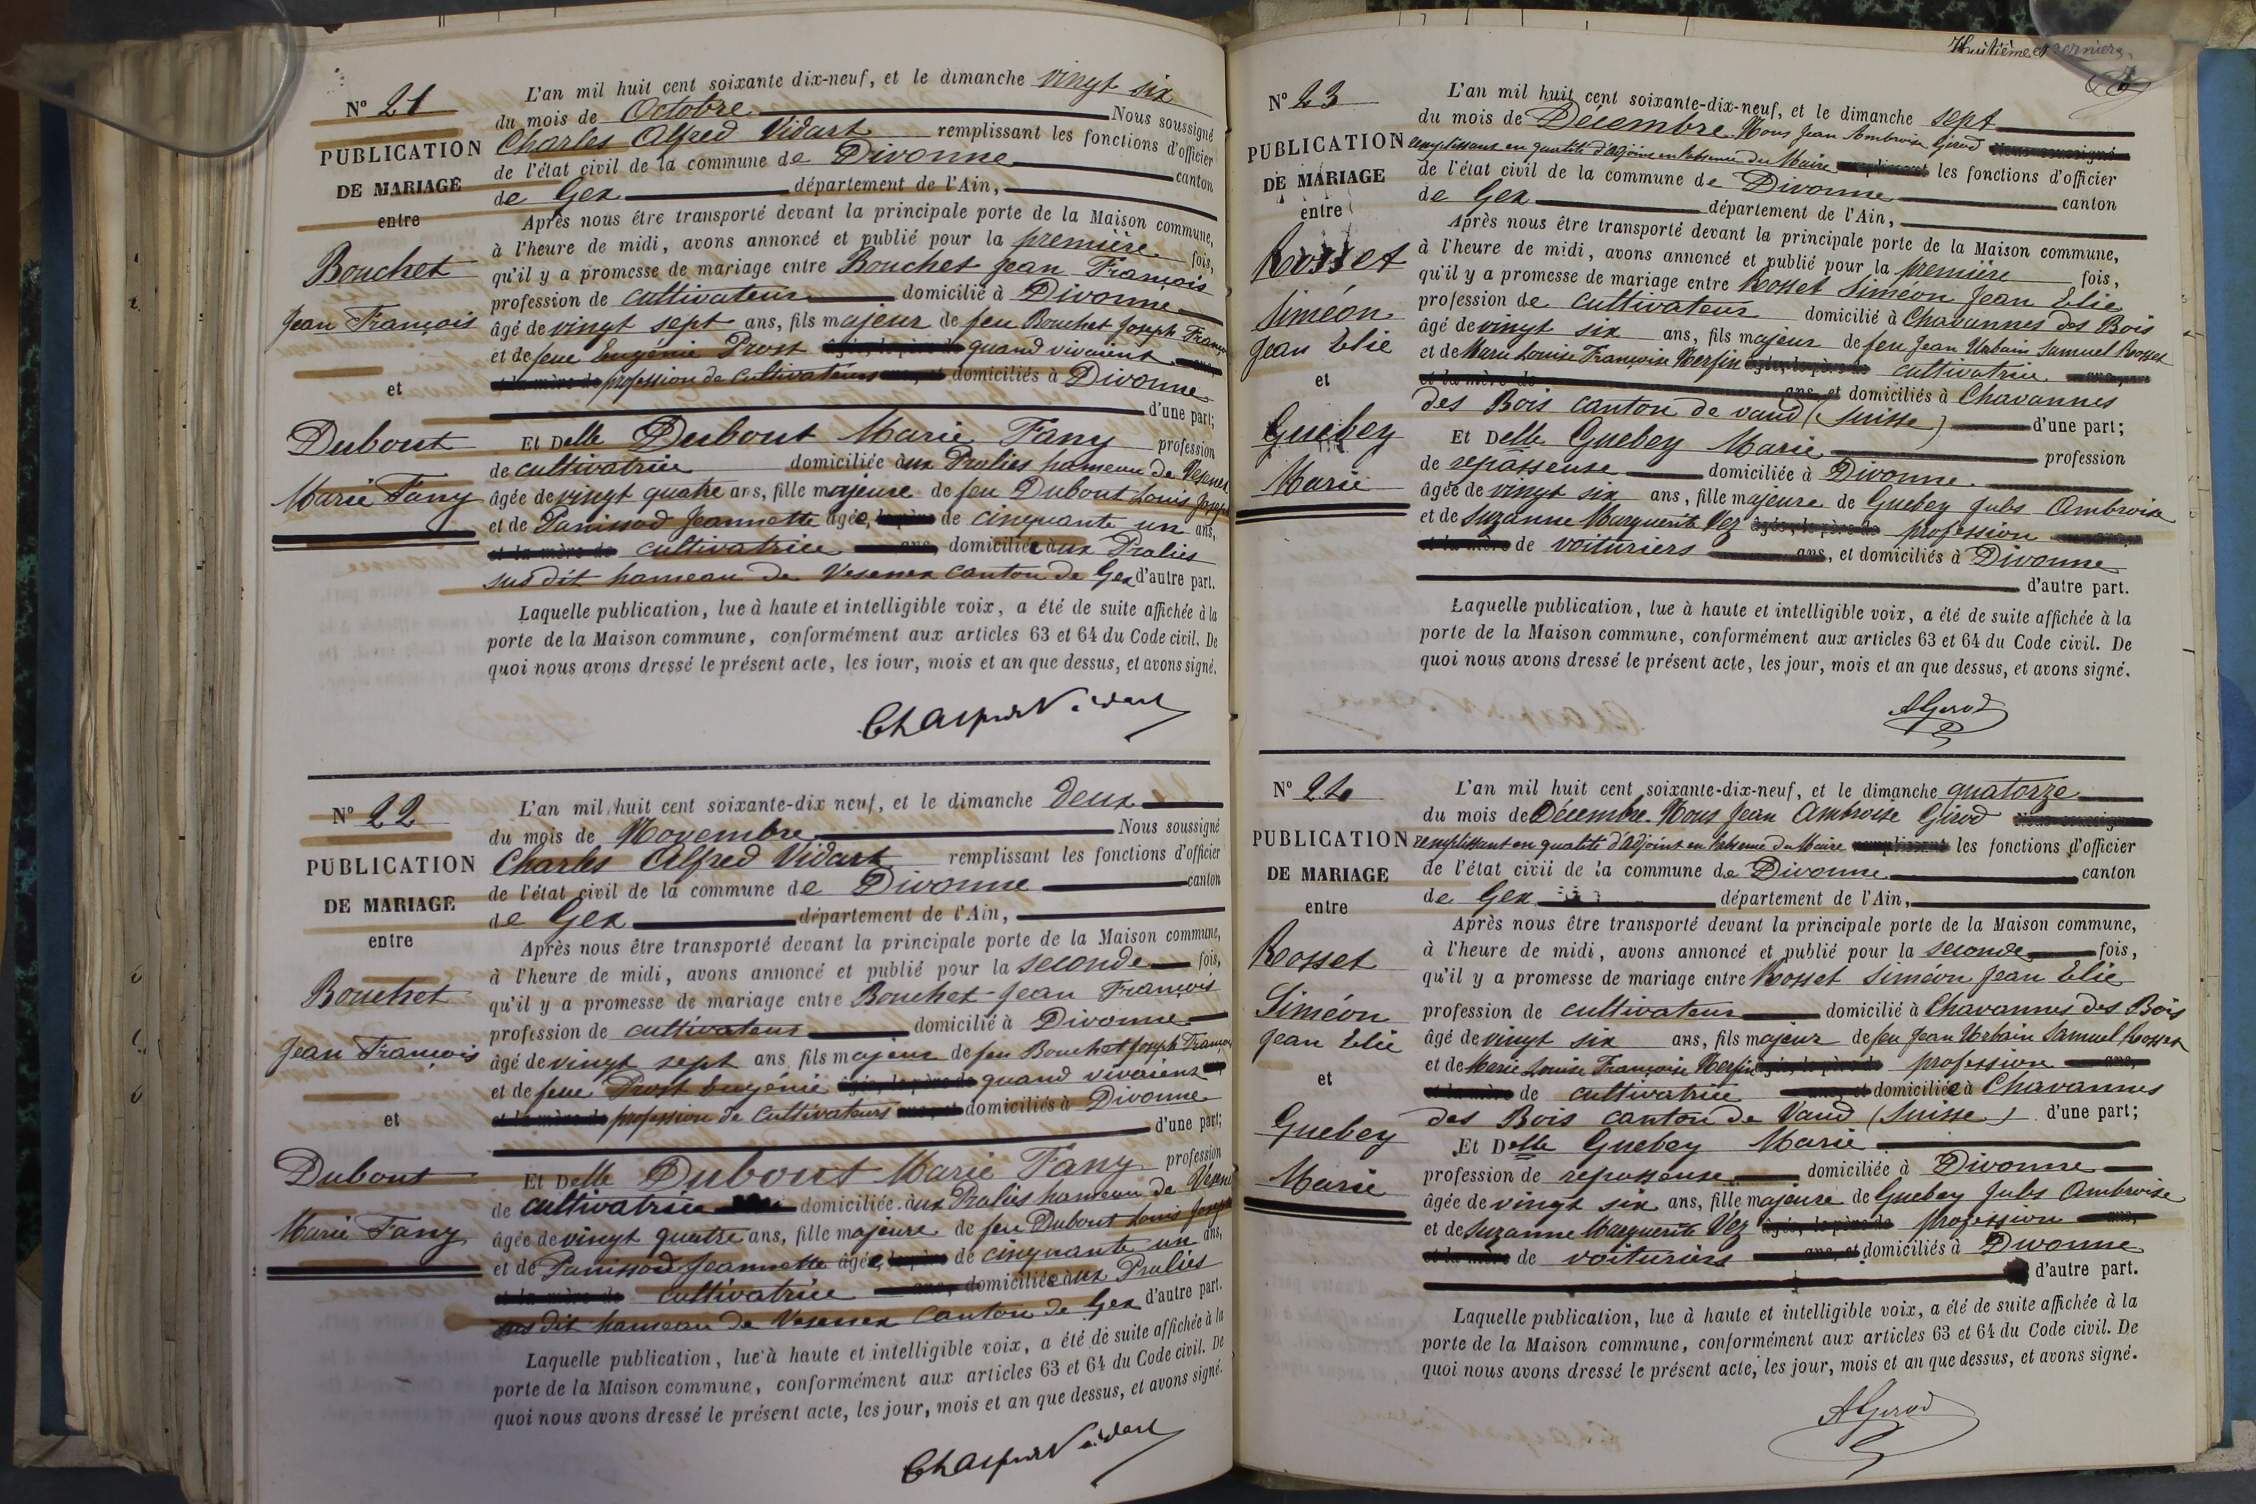 N° 21
PUBLICATION
DE MARIAGE
entre
Bouchet
Jean François
et
Dubout
Marie Fany
L'an mil huit cent soixante dix-neuf, et le dimanche vingt six
du mois de Octobre Nous soussigné
Charles Alfred Vidart remplissant les fonctions d'officier
de l'état civil de la commune de Divonne canton
de Gex département de l'Ain,
Après nous être transporté devant la principale porte de la Maison commune,
à l'heure de midi, avons annoncé et publié pour la première fois,
qu'il y a promesse de mariage entre Bouchet Jean François
profession de cultivateur domicilié à Divonne
âgé de vingt sept ans, fils majeur de feu Bouchet Joseph Franço
et de feue Eugénie Prost quand vivaient
et la mère de profession de cultivateurs domiciliés à Divonne
d'une part;
Et Delle Dubout Marie Fany profession
de cultivatrice domiciliée aux Pralies hameau de Vesenex
âgée de vingt quatre ans, fille majeure de feu Dubout Louis Joseph
et de Panissod Jeannette âgée, le père de cinquante un ans,
et la mère de cultivatrice ans, domiciliée aux Pralies
sus dit hameau de Vesenex canton de Gex d'autre part.
Laquelle publication, lue à haute et intelligible voix, a été de suite affichée à la
porte de la Maison commune, conformément aux articles 63 et 64 du Code civil. De
quoi nous avons dressé le présent acte, les jour, mois et an que dessus, et avons signé.
N° 22
PUBLICATION
DE MARIAGE
entre
Bouchet
Jean François
et
Dubout
Marie Fany
L'an mil huit cent soixante-dix neuf, et le dimanche deux
du mois de Novembre Nous soussigné
Charles Alfred Vidart remplissant les fonctions d'officier
de l'état civil de la commune de Divonne canton
de Gex département de l'Ain,
Après nous être transporté devant la principale porte de la Maison commune,
à l'heure de midi, avons annoncé et publié pour la seconde fois,
qu'il y a promesse de mariage entre Bouchet Jean François
profession de cultivateur domicilié à Divonne
âgé de vingt sept ans, fils majeur de feu Bouchet Joseph Franço
et de feue Prost Eugénie âgés, le père de quand vivaient
et la mère de profession de cultivateurs ans, et domiciliés à Divonne
d'une part;
Et Delle Dubout Marie Fany profession
de cultivatrice domiciliée aux Pralies hameau de Vesene
âgée de vingt quatre ans, fille majeure de feu Dubout Louis Joseph
et de Panissod Jeannette âgée, le père de cinquante un ans,
et la mère de cultivatrice ans, domiciliée aux Pralies
sus dit hameau de Vesenex canton de Gex d'autre part.
Laquelle publication, lue à haute et intelligible voix, a été de suite affichée à la
porte de la Maison commune, conformément aux articles 63 et 64 du Code civil. De
quoi nous avons dressé le présent acte, les jour, mois et an que dessus, et avons signé.
Huitième et dernier
N° 23
PUBLICATION
DE MARIAGE
entre
Rosset
Siméon
Jean Elie
et
Guebey
Marie
L'an mil huit cent soixante-dix-neuf, et le dimanche sept
du mois de Décembre Nous Jean Ambroise Girod Nous soussigné
remplissant en qualité d'adjoint en l'absence du Maire remplissant les fonctions d'officier
de l'état civil de la commune de Divonne canton
de Gex département de l'Ain,
Après nous être transporté devant la principale porte de la Maison commune,
à l'heure de midi, avons annoncé et publié pour la première fois,
qu'il y a promesse de mariage entre Rosset Siméon Jean Elie
profession de cultivateur domicilié à Chavannes des Bois
âgé de vingt six ans, fils majeur de feu Jean Urbain Samuel Rosset
et de Marie Louise Françoise âgés, le père de cultivatrice
et la mère de ans, et domiciliés à Chavannes
des Bois canton de vaud (Suisse) d'une part;
Et Delle Guebey Marie profession
de repasseuse domiciliée à Divonne
âgée de vingt six ans, fille majeure de Guebey Jules Ambroise
et de Suzanne Marguerite Vez âgés, le père de profession
et la mère de voituriers ans, et domiciliés à Divonne
d'autre part.
Laquelle publication, lue à haute et intelligible voix, a été de suite affichée à la
porte de la Maison commune, conformément aux articles 63 et 64 du Code civil. De
quoi nous avons dressé le présent acte, les jour, mois et an que dessus, et avons signé.
AGirod
N° 24
PUBLICATION
DE MARIAGE
entre
Rosset
Siméon
Jean Elie
et
Guebey
Marie
L'an mil huit cent soixante-dix-neuf, et le dimanche quatorze
du mois de Décembre. Nous Jean Ambroise Girod Nous soussigné
remplissant en qualité d'adjoint en l'absence du Maire remplissant les fonctions d'officier
de l'état civil de la commune de Divonne canton
de Gex département de l'Ain,
Après nous être transporté devant la principale porte de la Maison commune,
à l'heure de midi, avons annoncé et publié pour la seconde fois,
qu'il y a promesse de mariage entre Rosset Siméon Jean Elie
profession de cultivateur domicilié à Chavannes des Bois
âgé de vingt six ans, fils majeur de feu Jean Urbain Samuel Rosset
et de Marie Louise Françoise âgés, le père de profession ans,
et la mère de cultivatrice ans, et domiciliée à Chavannes
des Bois canton de Vaud (Suisse) d'une part;
Et Delle Guebey Marie
profession de repasseuse domiciliée à Divonne
âgée de vingt six ans, fille majeure de Guebey Jules Ambroise
et de Suzanne Marguerite Vez âgés, le père de profession ans,
et la mère de voituriers ans, et domiciliés à Divonne
d'autre part.
Laquelle publication, lue à haute et intelligible voix, a été de suite affichée à la
porte de la Maison commune, conformément aux articles 63 et 64 du Code civil. De
quoi nous avons dressé le présent acte, les jour, mois et an que dessus, et avons signé.
AGirod